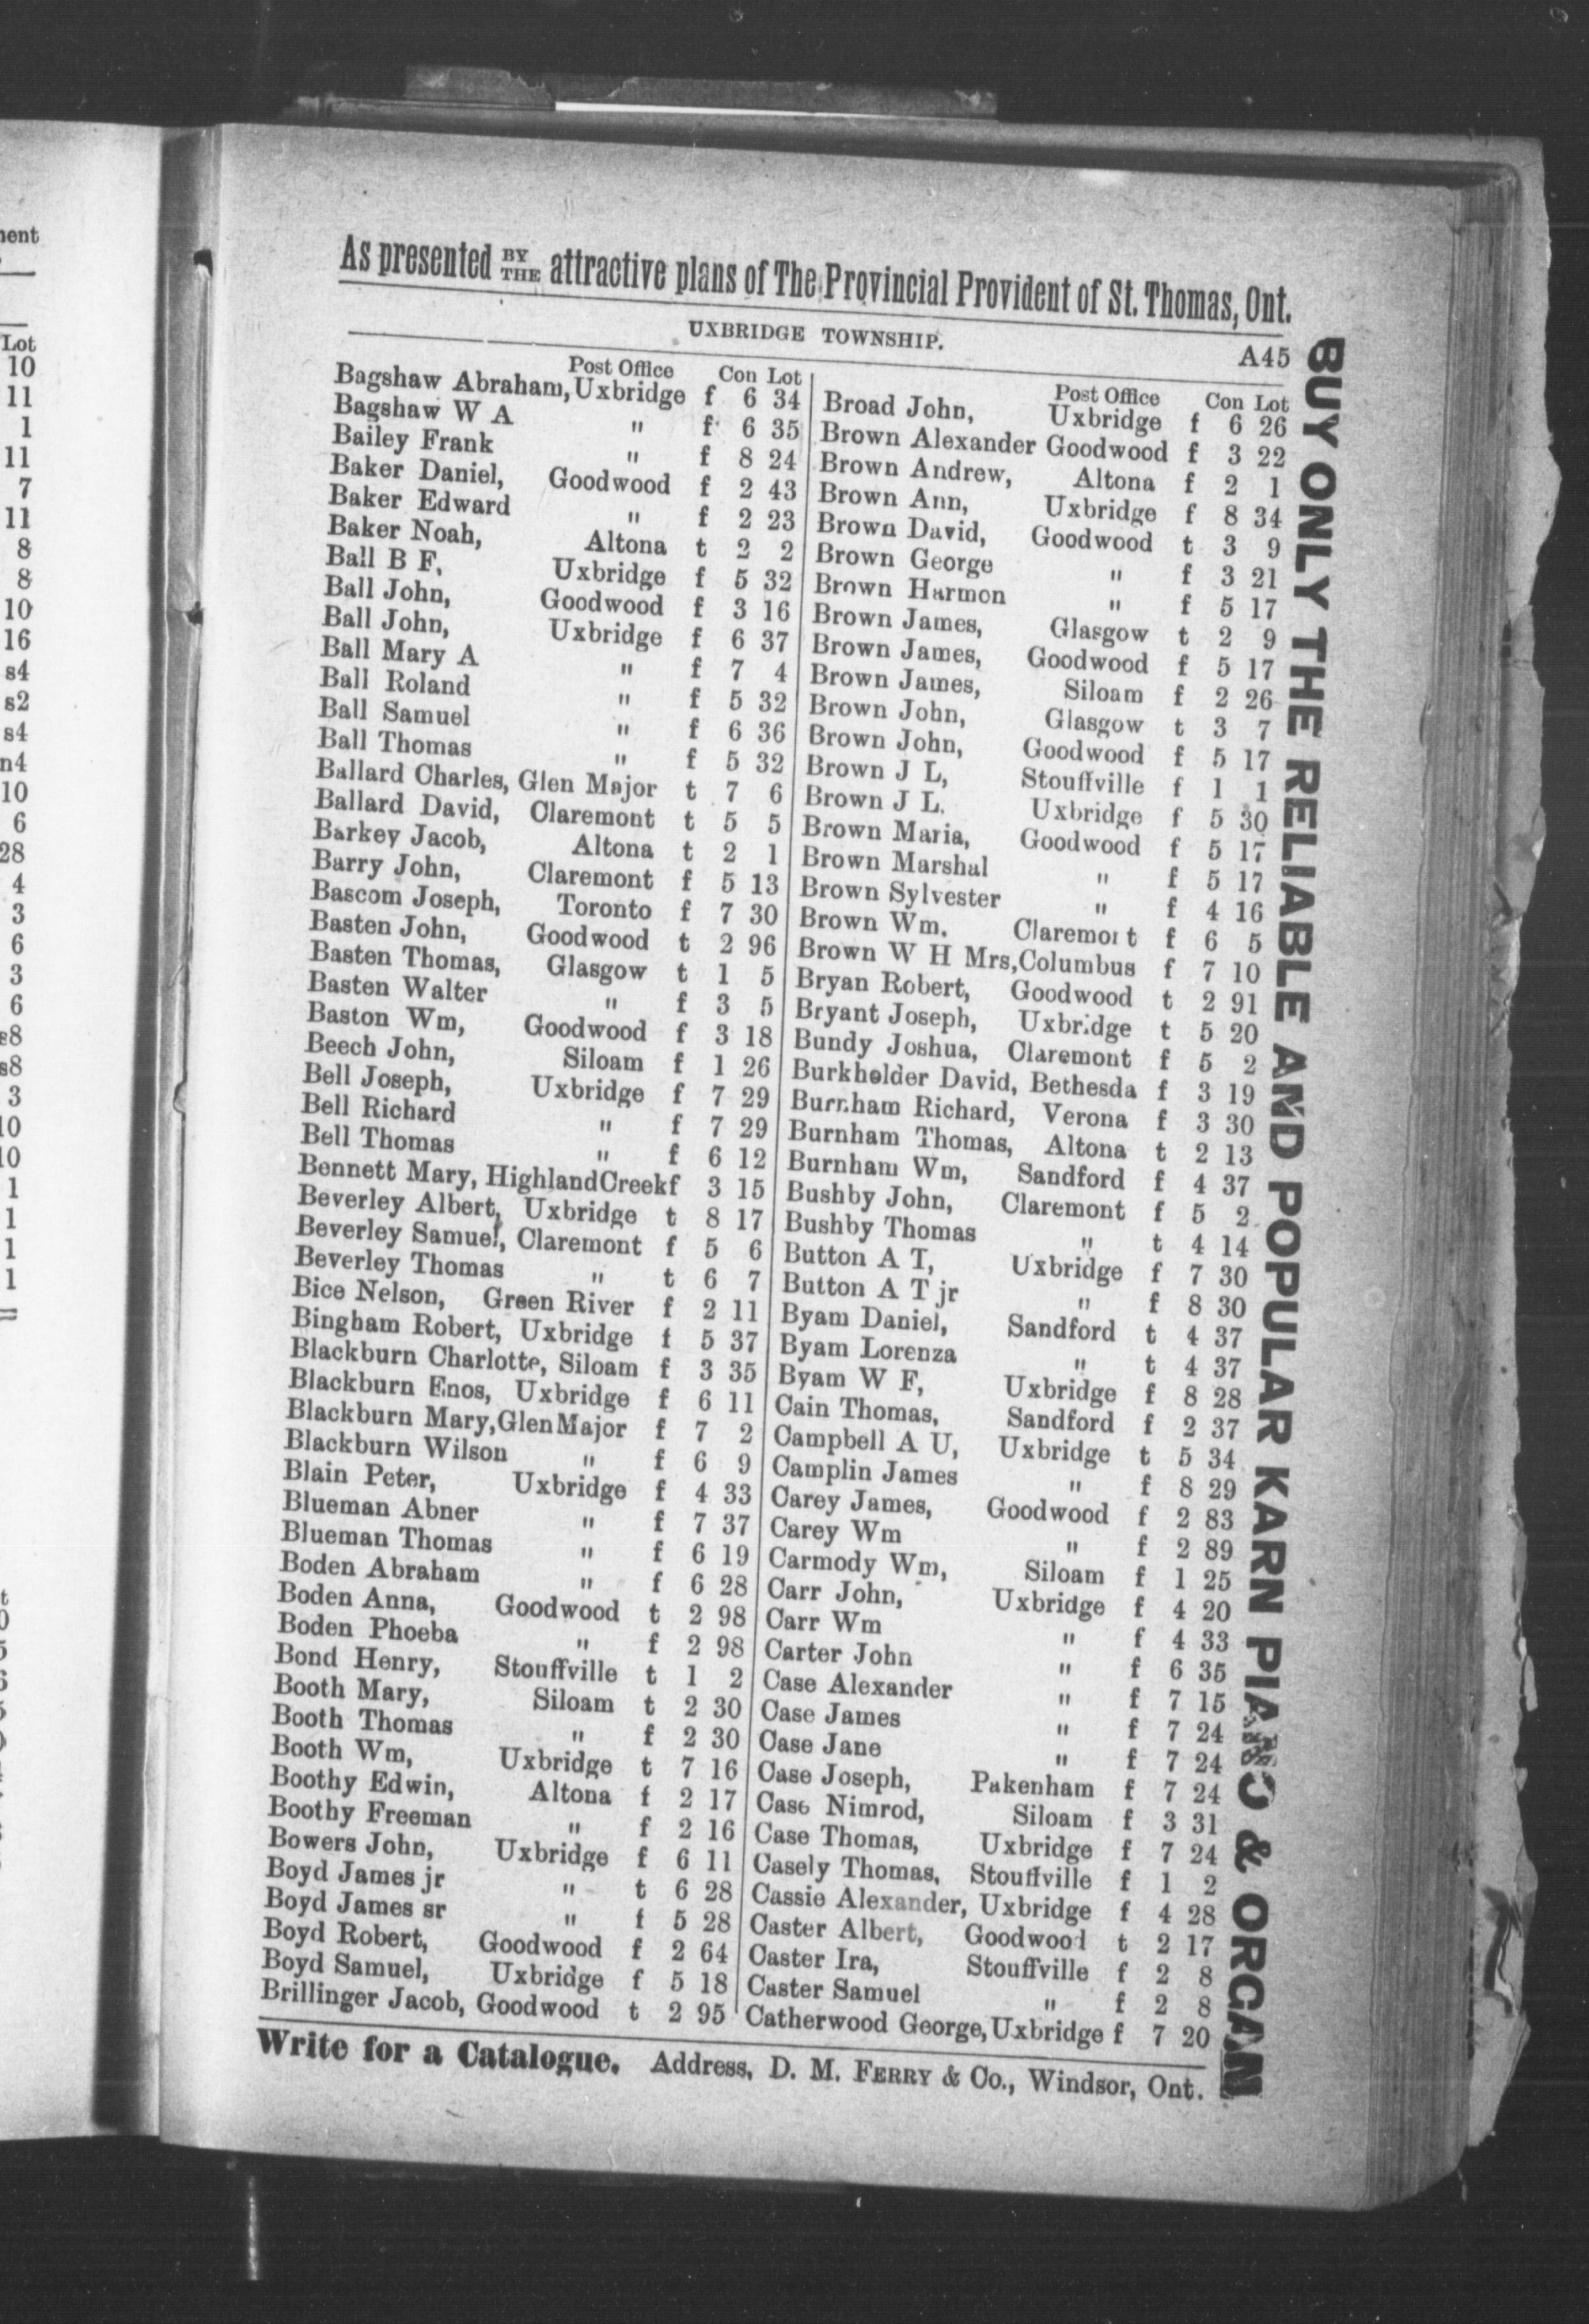 ment
Lot
10
11
1
11
7
11
8
8
10
16
s4
s2
s4
n4
10
6
28
4
3
6
3
6
s8
s8
3
10
10
1
1
1
1
As presented BY THE attractive plans of The Provincial Provident of St. Thomas, Ont.
UXBRIDGE TOWNSHIP. A45
Post Office Con Lot
Bagshaw Abraham, Uxbridge f 6 34
Bagshaw W A " f 6 35
Bailey Frank " f 8 24
Baker Daniel, Goodwood f 2 43
Baker Edward " f 2 23
Baker Noah, Altona t 2 2
Ball B F, Uxbridge f 5 32
Ball John, Goodwood f 3 16
Ball John, Uxbridge f 6 37
Ball Mary A " f 7 4
Ball Roland " f 5 32
Ball Samuel " f 6 36
Ball Thomas " f 5 32
Ballard Charles, Glen Major t 7 6
Ballard David, Claremont t 5 5
Barkey Jacob, Altona t 2 1
Barry John, Claremont f 5 13
Bascom Joseph, Toronto f 7 30
Basten John, Goodwood t 2 96
Basten Thomas, Glasgow t 1 5
Basten Walter " f 3 5
Baston Wm, Goodwood f 3 18
Beech John, Siloam f 1 26
Bell Joseph, Uxbridge f 7 29
Bell Richard " f 7 29
Bell Thomas " f 6 12
Bennett Mary, HighlandCreekf 3 15
Beverley Albert, Uxbridge t 8 17
Beverley Samuel, Claremont f 5 6
Beverley Thomas " t 6 7
Bice Nelson, Green River f 2 11
Bingham Robert, Uxbridge f 5 37
Blackburn Charlotte, Siloam f 3 35
Blackburn Enos, Uxbridge f 6 11
Blackburn Mary, GlenMajor f 7 2
Blackburn Wilson " f 6 9
Blain Peter, Uxbridge f 4 33
Blueman Abner " f 7 37
Blueman Thomas " f 6 19
Boden Abraham " f 6 28
Boden Anna, Goodwood t 2 98
Boden Phoeba " f 2 98
Bond Henry, Stouffville t 1 2
Booth Mary, Siloam t 2 30
Booth Thomas " f 2 30
Booth Wm, Uxbridge t 7 16
Boothy Edwin, Altona f 2 17
Boothy Freeman " f 2 16
Bowers John, Uxbridge f 6 11
Boyd James jr " t 6 28
Boyd James sr " f 5 28
Boyd Robert, Goodwood f 2 64
Boyd Samuel, Uxbridge f 5 18
Brillinger Jacob, Goodwood t 2 95
Post Office Con Lot
Broad John, Uxbridge f 6 26
Brown Alexander Goodwood f 3 22
Brown Andrew, Altona f 2 1
Brown Ann, Uxbridge f 8 34
Brown David, Goodwood t 3 9
Brown George " f 3 21
Brown Harmon " f 5 17
Brown James, Glasgow t 2 9
Brown James, Goodwood f 5 17
Brown James, Siloam f 2 26
Brown John, Glasgow t 3 7
Brown John, Goodwood f 5 17
Brown J L, Stouffville f 1 1
Brown J L. Uxbridge f 5 30
Brown Maria, Goodwood f 5 17
Brown Marshal " f 5 17
Brown Sylvester " f 4 16
Brown Wm, Claremont f 6 5
Brown W H Mrs, Columbus f 7 10
Bryan Robert, Goodwood t 2 91
Bryant Joseph, Uxbridge t 5 20
Bundy Joshua, Claremont f 5 2
Burkholder David, Bethesda f 3 19
Burnham Richard, Verona f 3 30
Burnham Thomas, Altona t 2 13
Burnham Wm, Sandford f 4 37
Bushby John, Claremont f 5 2
Bushby Thomas " t 4 14
Button A T, Uxbridge f 7 30
Button A T jr " f 8 30
Byam Daniel, Sandford t 4 37
Byam Lorenza " t 4 37
Byam W F, Uxbridge f 8 28
Cain Thomas, Sandford f 2 37
Campbell A U, Uxbridge t 5 34
Camplin James " f 8 29
Carey James, Goodwood f 2 83
Carey Wm " f 2 89
Carmody Wm, Siloam f 1 25
Carr John, Uxbridge f 4 20
Carr Wm " f 4 33
Carter John " f 6 35
Case Alexander " f 7 15
Case James " f 7 24
Case Jane " f 7 24
Case Joseph, Pakenham f 7 24
Case Nimrod, Siloam f 3 31
Case Thomas, Uxbridge f 7 24
Casely Thomas, Stouffville f 1 2
Cassie Alexander, Uxbridge f 4 28
Caster Albert, Goodwood t 2 17
Caster Ira, Stouffville f 2 8
Caster Samuel " f 2 8
Catherwood George, Uxbridge f 7 20
Write for a Catalogue. Address, D. M. FERRY & Co., Windsor, Ont.
BUY ONLY THE RELIABLE AND POPULAR KARN PIANO & ORGAN